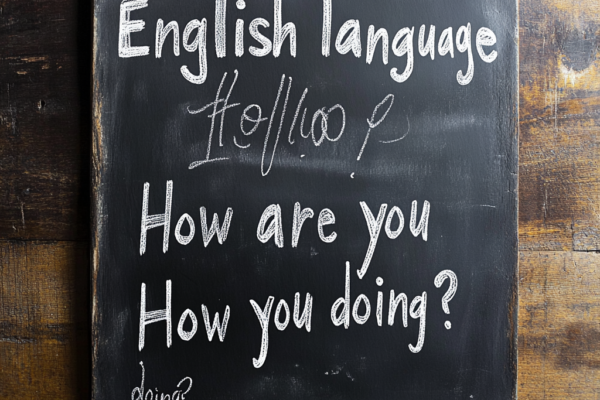 English language
How are you
How you doing?
doing?